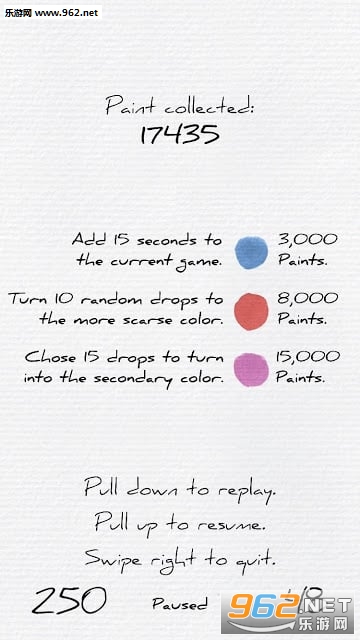 乐游网 www.962.net
Paint collected:
17435
Add 15 seconds to
the current game.
3,000
Paints.
Turn 10 random drops to
the more scarse color.
8,000
Paints.
Chose 15 drops to turn
into the secondary color.
15,000
Paints.
Pull down to replay.
Pull up to resume.
Swipe right to quit.
250
Paused
962.NET
乐游网